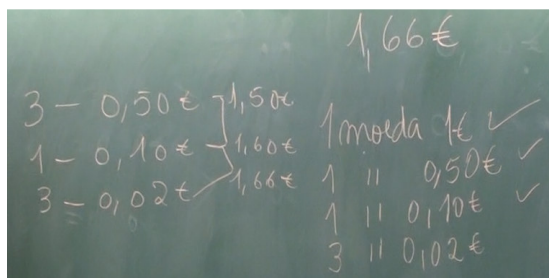 1,66€
3 - 0,50€ 1,50€
1 - 0,10€ 1,60€
3 - 0,02€ 1,66€
1 moeda 1€ ✓
1 " 0,50€ ✓
1 " 0,10€ ✓
3 " 0,02€